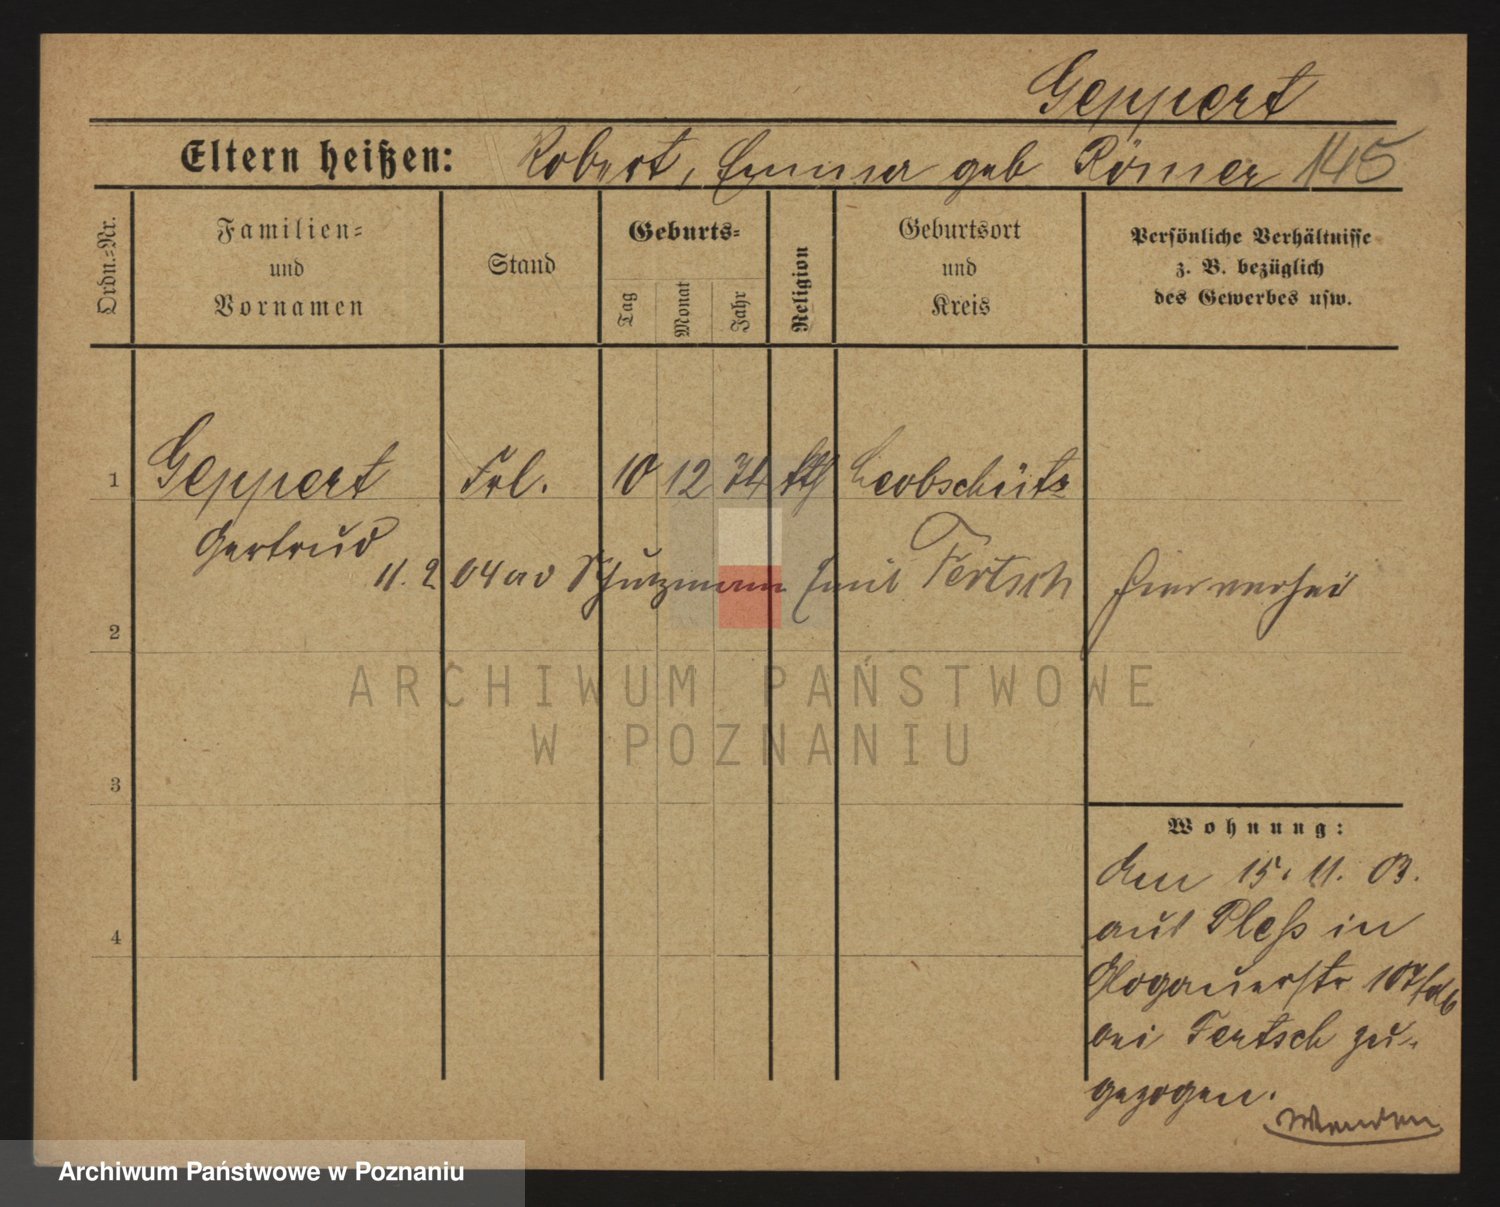 Geppert
Eltern heißen: Robert, Emma geb Römer 145
Ordn.-Nr.
Familien-
und
Vornamen
Stand
Geburts-
Tag
Monat
Jahr
Religion
Geburtsort
und
Kreis
Persönliche Verhältnisse
z. B. bezüglich
des Gewerbes usw.
1 Geppert Frl. 10 12 74 kth Leobschütz
Gertrud
11.2 04 Schutzmann Emil Fertsch hier verhei
2
ARCHIWUM PAŃSTWOWE
W POZNANIU
3
Wohnung:
den 15. 11. 03.
aus Pleß in
Glogauerstr 107
bei Fertsch zu-
gezogen.
Wenden
4
Archiwum Państwowe w Poznaniu